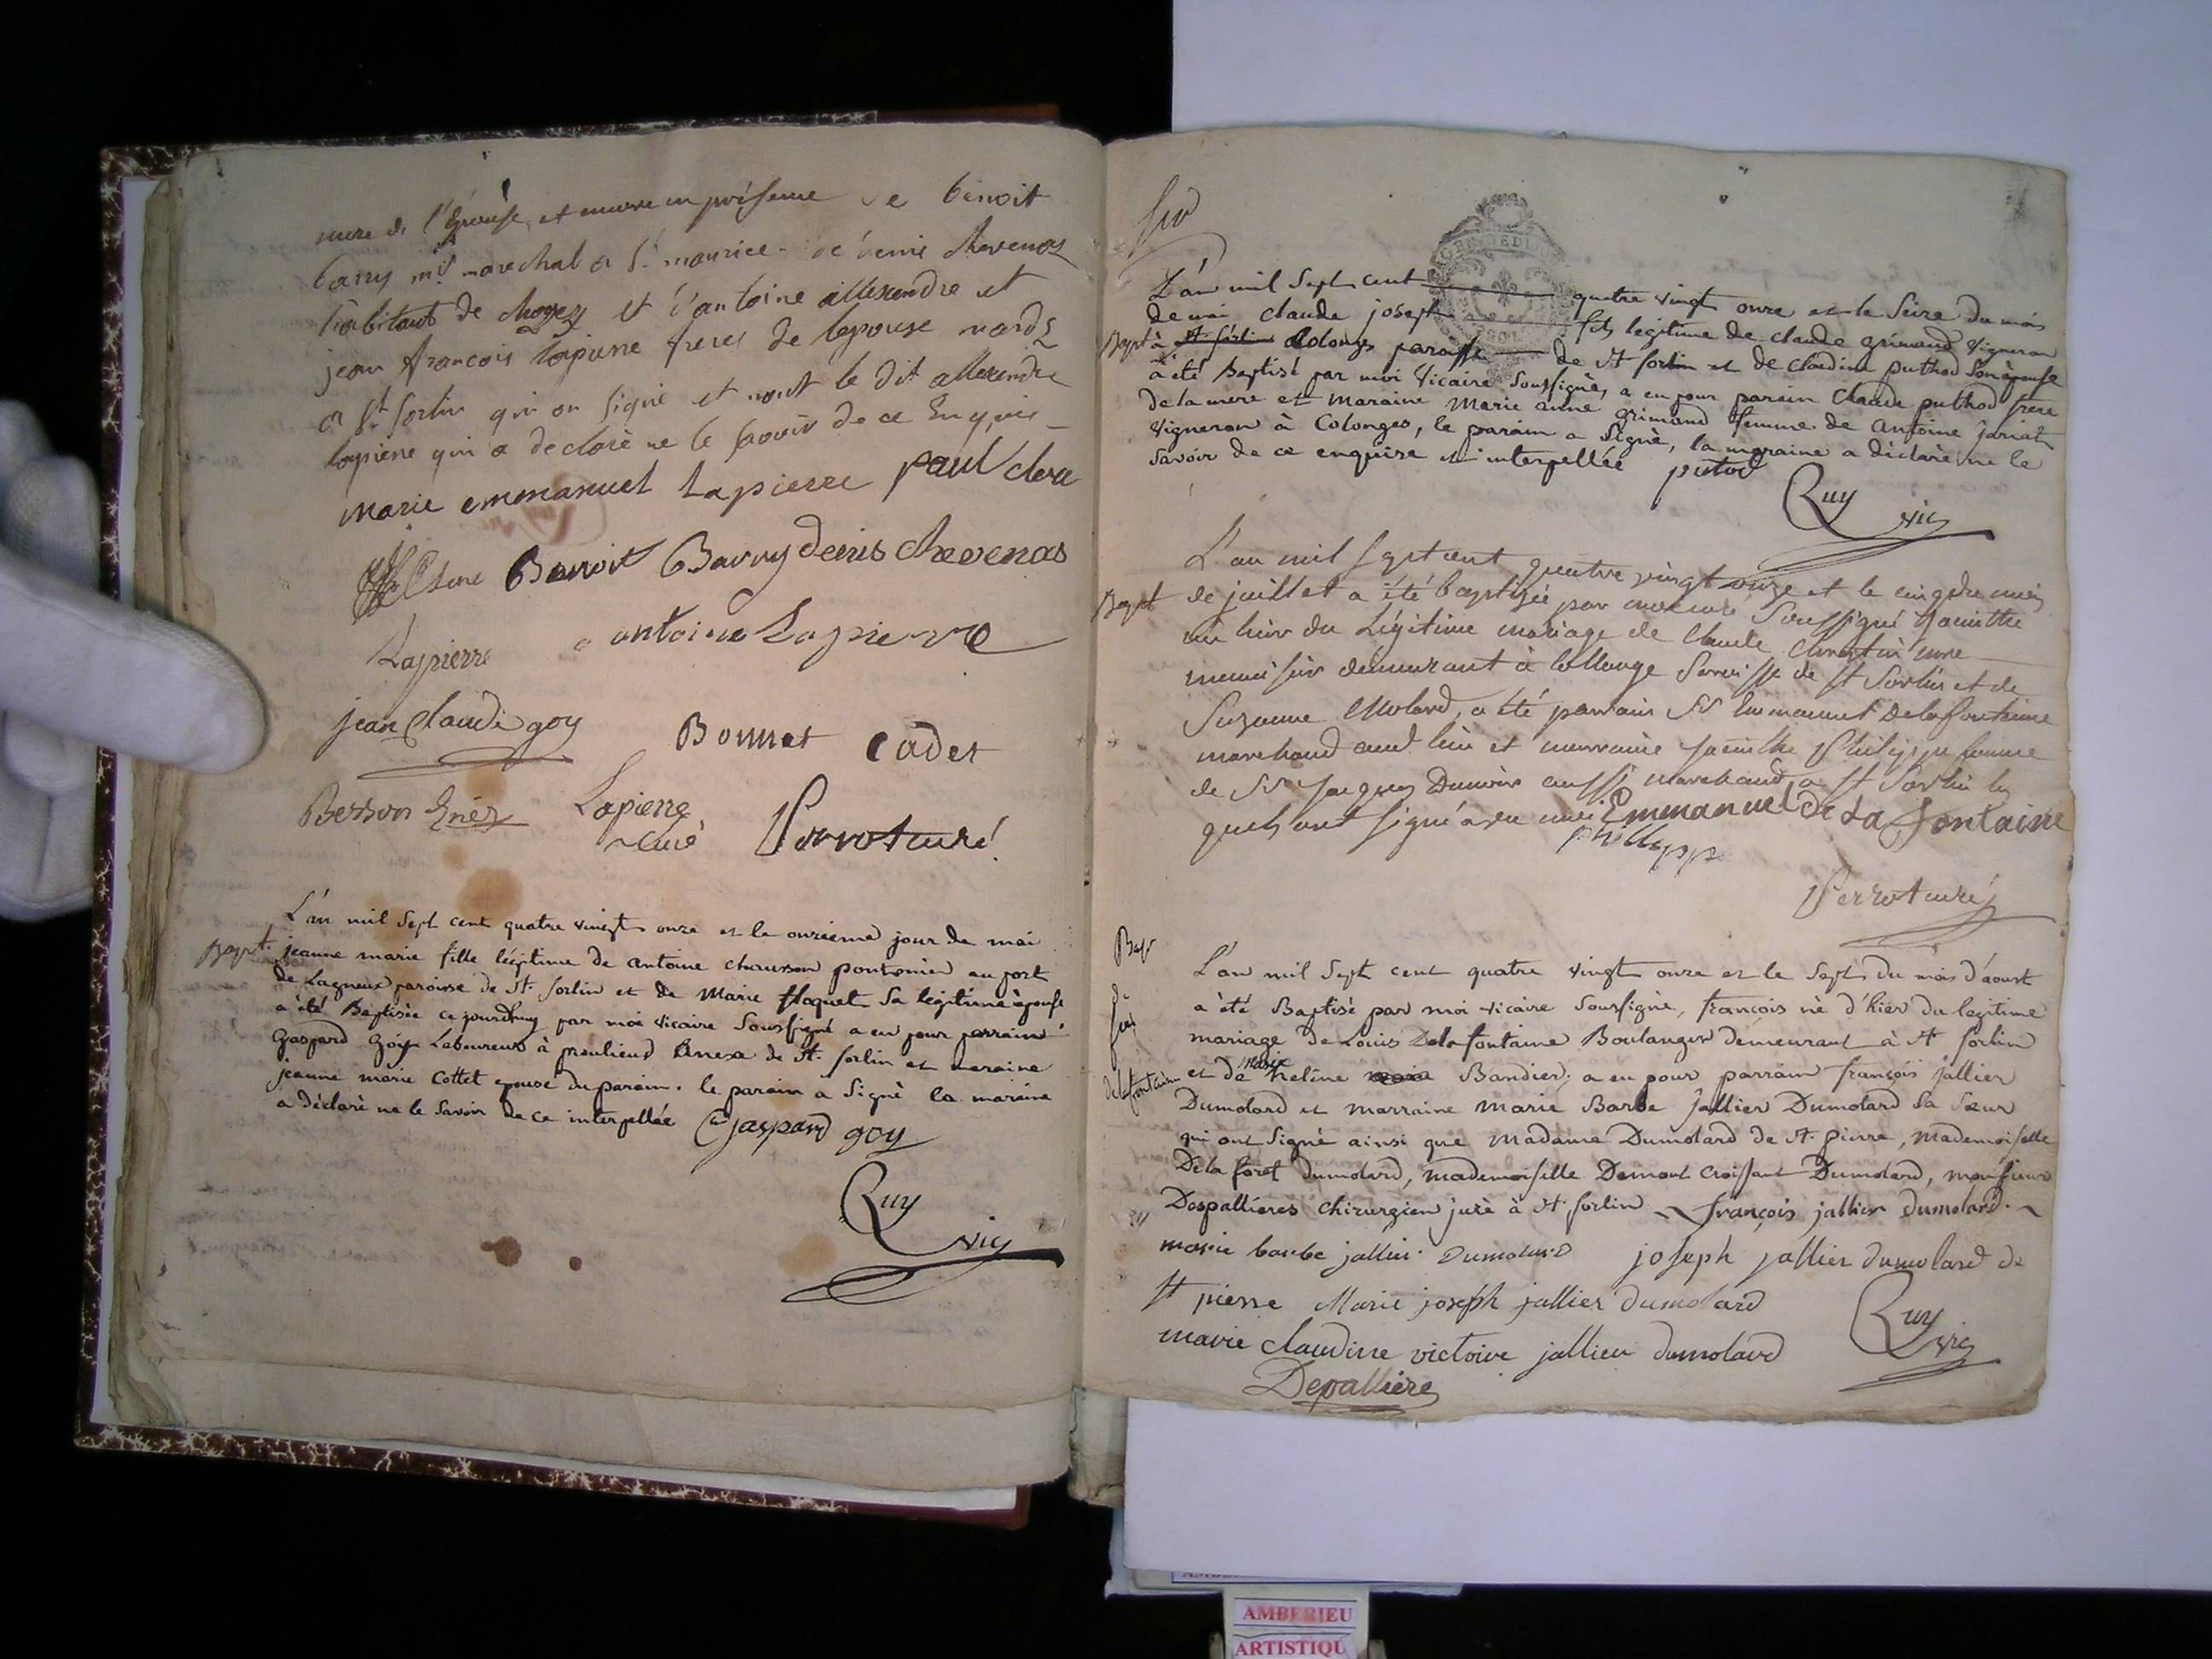 mere de l'Epouse, et encore en présence de benoit
barry md marechal a St maurice de denis chevenas
habitant de chogey et d'antoine allexandre et
jean françois lapierre freres de lepouse mards
a St sorlin qui on signé et nont le dit allexandre
lapierre qui a declaré ne le savoir de ce Enquis
marie emmanuel Lapierre paul clere
Clere Benoit Barry denis chevenas
Lapierre antoine Lapierre
jean Claude goy Bonnet Cadet
Besson Lapierre
curé Perrot curé
L'an mil sept cent quatre vingt onze et le onzieme jour de mai
Bapt. jeanne marie fille légitime de antoine chausson pontonnier au port
de Lagneux paroisse de St. sorlin et de Marie flaquet sa legitime épouse
a été Baptisée ce jourdhuy par moi vicaire soussigné a eu pour parrain
Gaspard Goy Laboureur à proulieud Anexe de St. sorlin et maraine
jeanne marie Cottet epouse du parain. le parain a signé la maraine
a déclaré ne le savoir de ce interpellée Gaspard goy
Ruy
vic
L'an mil sept cent quatre vingt onze et le seize du mois
de mai claude joseph fils legitime de claude grimaud vigneron
Bapt à St sorlin Colonges paroisse de St sorlin et de claudine puthod son épouse
a été Baptisé par moi vicaire soussigné, a eu pour parain Claude puthod frere
de la mere et maraine Marie anne grimaud femme de antoine jariat
vigneron à Colonges, le parain a signé, la maraine a déclaré ne le
savoir de ce enquise et interpellée putod
Ruy
vic
L'an mil sept cent quatre vingt onze et le cinq du mois
Bapt de juillet a été baptisée par moi curé soussigné Jacinthe
née hier du Légitime mariage de Claude
menuisier demeurant à Collonge Paroisse de St Sorlin et de
Suzanne Molard, a été parrain Sr Emmanuel Delafontaine
marchand audt lieu et marraine jacinthe Philippe femme
de Sr Jacques Dunoir aussi marchand a St Sorlin les
quels ont signé avec moi Emmanuel De La Fontaine
Philippe
Perrot curé
Bap
L'an mil sept cent quatre vingt onze et le sept du mois d'aoust
a été Baptisé par moi vicaire soussigné, françois né d'hier du legitime
mariage de Louis Delafontaine Boulanger demeurant à St sorlin
delafontaine et de marie heléne Bandier; a eu pour parrain françois jallier
Dumolard et marraine marie Barbe Jallier Dumolard sa sœur
qui ont signé ainsi que Madame Dumolard de St. pierre, mademoiselle
De la foret dumolard, mademoiselle Demont croissant Dumolard, monsieur
Despallieres chirurgien juré à St. sorlin françois jallier dumolard.
marie barbe jallier Dumolard joseph jallier dumolard de
St pierre Marie joseph jallier dumolard
marie claudine victoire jallier dumolard
Ruy
vic
Depalliere
AMBERIEU
ARTISTIQU